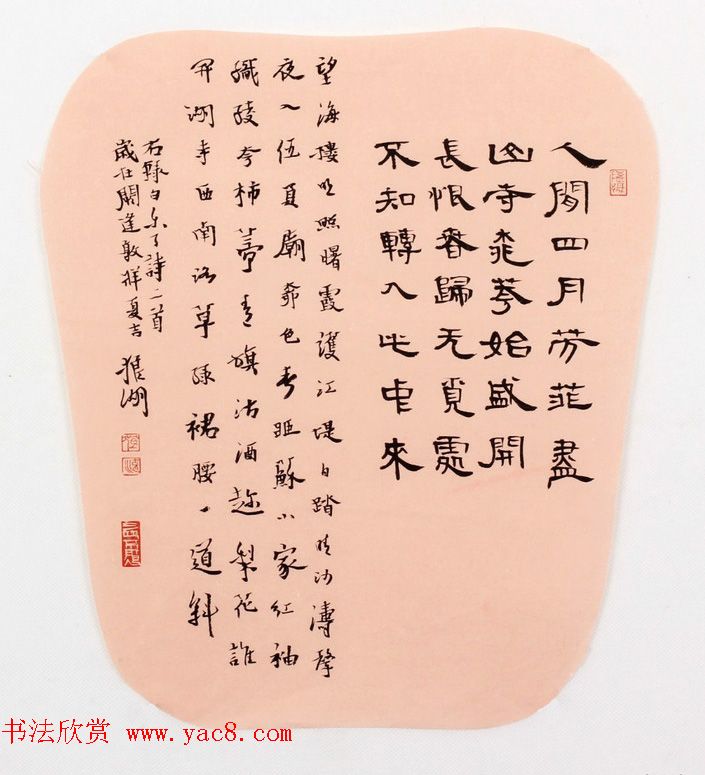 人間四月芳菲盡
山寺桃華始盛開
長恨春歸无覓處
不知轉入此中來
望海樓明照曙霞護江堤白踏晴沙濤聲
夜入伍員廟柳色春藏蘇小家紅袖
織綾夸柿蒂青旗沽酒趁梨花誰
開湖寺西南路草綠裙腰一道斜
右錄白樂天詩二首
歲在閼逢敦牂夏吉 湖
书法欣赏 www.yac8.com